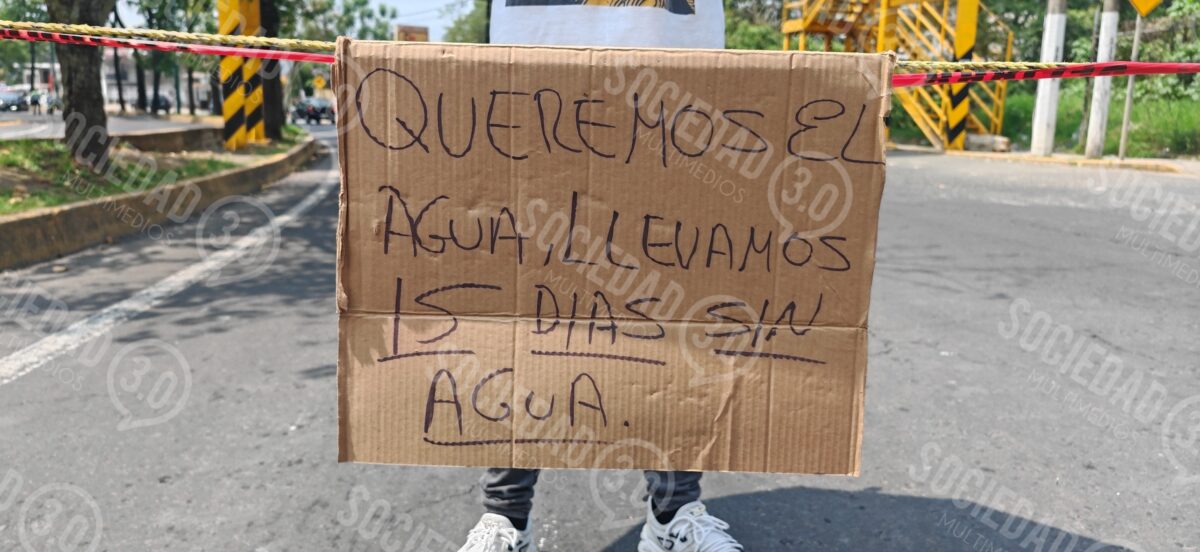 QUEREMOS EL
AGUA, LLEVAMOS
15 DIAS SIN
AGUA.
SOCIEDAD
3.0
MULTIMEDIOS